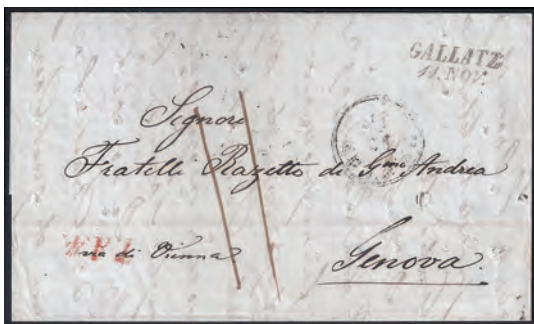 GALLATZ
11. NOV.
Signori
Fratelli Razetto di Gme Andrea
via di Vienna
Genova.